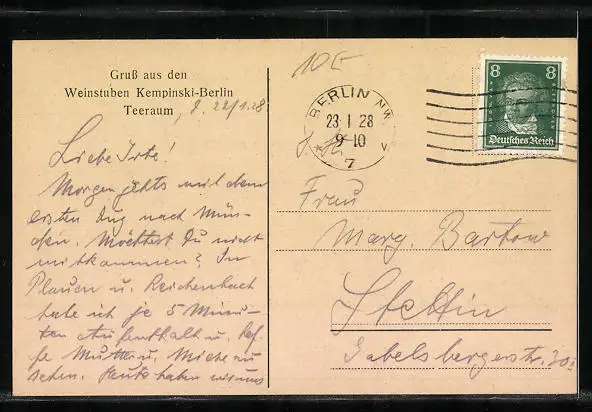 Gruß aus den
Weinstuben Kempinski-Berlin
Teeraum, d. 22/1.28
Liebe Irte!
Morgen gehts mit dem
ersten Zug nach Mün-
chen. Möchtest Du nicht
mitkommen? In
Plauen u. Reichenbach
habe ich je 5 Minu-
ten Aufenthalt u. hof-
fe Mutter u. zu
sehen. Heute haben wir uns
10E
BERLIN NW
23 1 28
9-10 V
* 7
8 8
Deutsches Reich
Frau
Marg. Bartow
Stettin
Gabelsbergerstr. 30